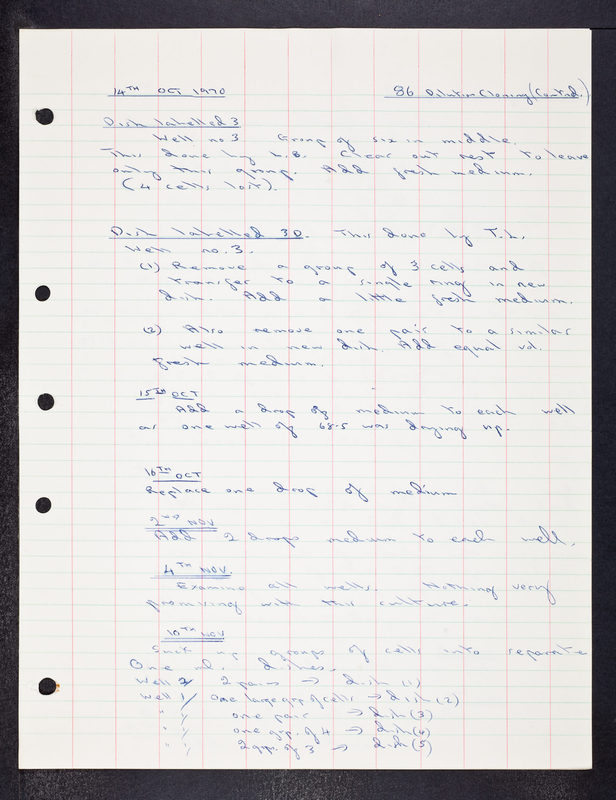 14TH OCT 1970 86 Dilution Cloning (Contd.)
Dish labelled 3
Well no 3. Group of six in middle.
This done by L.B. Clear out rest to leave
only this group. Add fresh medium.
(4 cells lost).
Dish labelled 3D. This done by T.L.
Well no. 3.
(1) Remove a group of 3 cells and
transfer to a single ring in new
dish. Add a little fresh medium.
(2) Also remove one pair to a similar
well in new dish. Add equal vol.
fresh medium.
15TH OCT
Add a drop of medium to each well
as one well of 68.5 was drying up.
16TH OCT
Replace one drop of medium
2ND NOV
Add 2 drops medium to each well.
4TH NOV.
Examine all wells. Nothing very
promising with this culture.
10TH NOV
Suck up groups of cells into separate
One ml. dishes.
Well 2/ 2 pairs → dish (1)
Well 1/ one large grp of cells → dish (2)
" / one pair → dish (3)
" / one grp. of 4 → dish (4)
" / 2 grp. of 3 → dish (5)